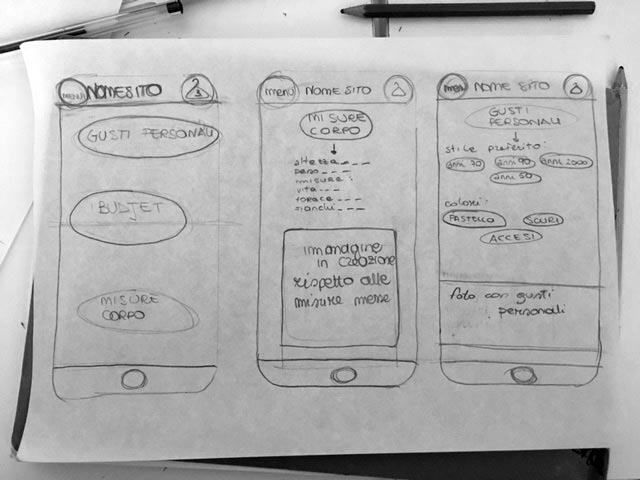 menù NOMESITO
GUSTI PERSONALI
BUDJET
MISURE
CORPO
menù NOME SITO
MISURE
CORPO
altezza _ _ _
peso _ _ _
misure:
vita _ _ _
torace _ _ _
fianchi _ _ _
immagine
in creazione
rispetto alle
misure messe
menù NOME SITO
GUSTI
PERSONALI
stile preferito:
anni 70 anni 90 anni 2000
anni 50
colori:
PASTELLO SCURI
ACCESI
foto con gusti
personali